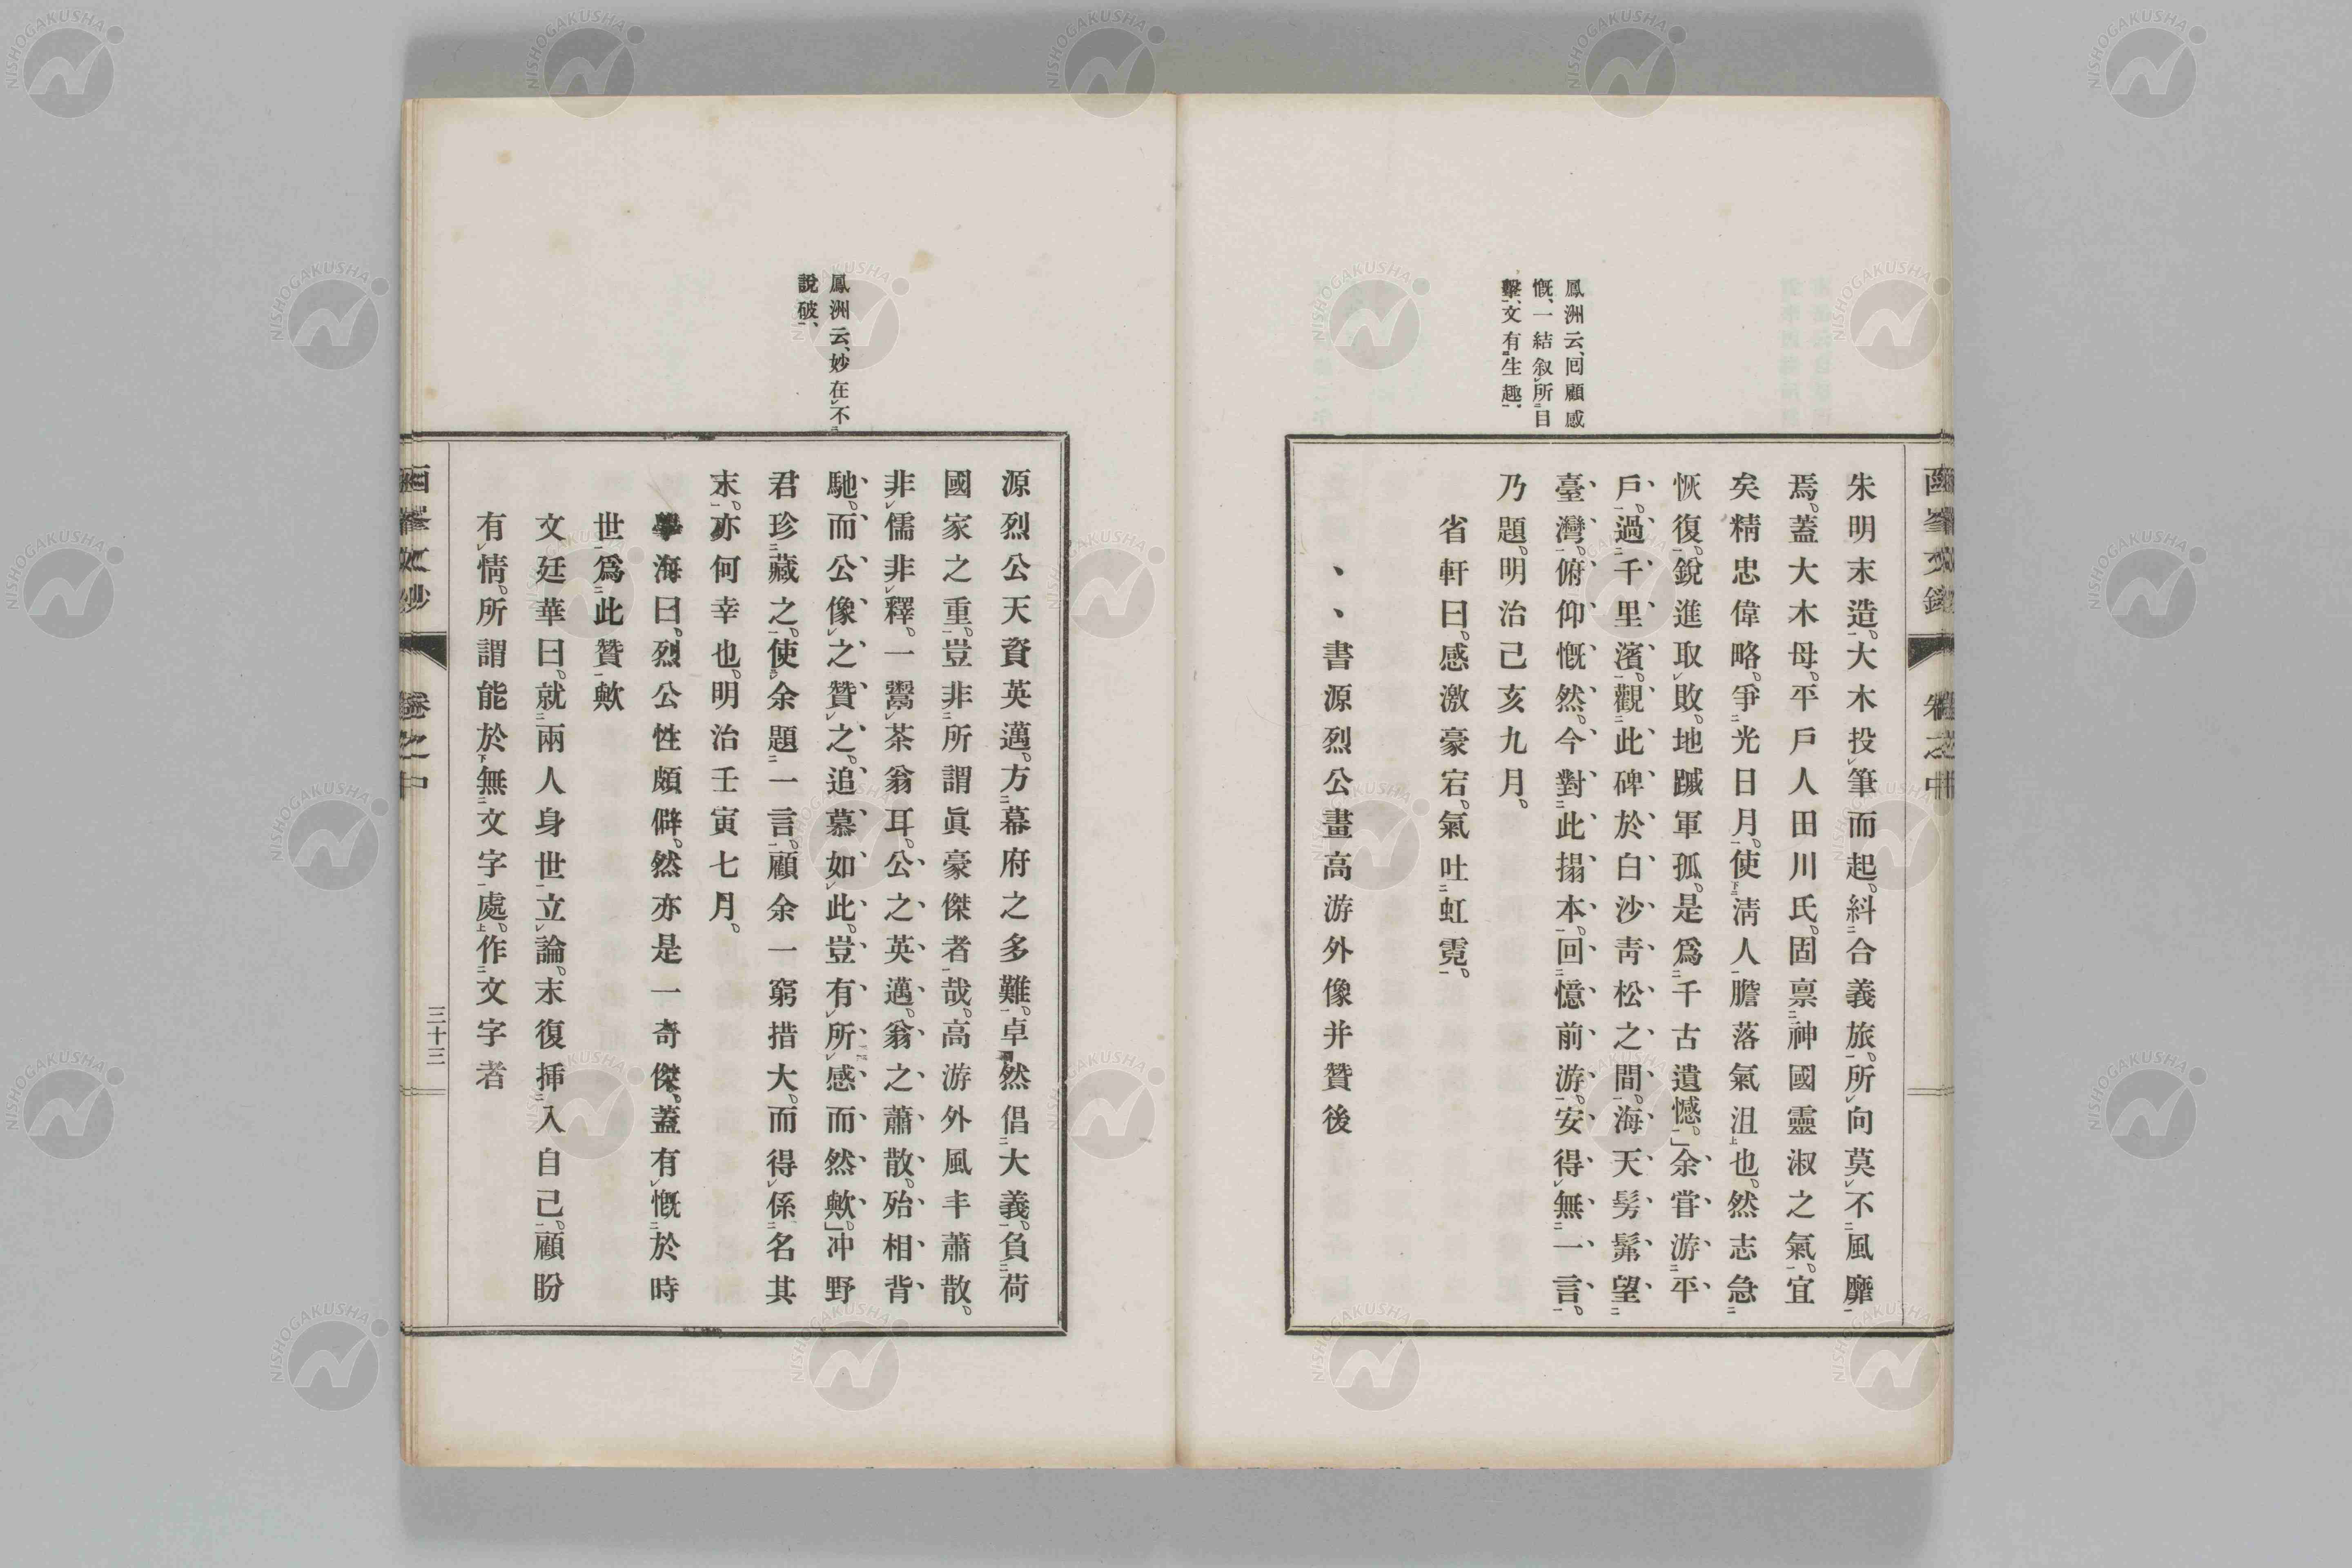 鳳洲云、回顧感
慨、一結叙所目
擊、文有生趣、
朱明末造。大木投筆而起。糾合義旅。所向莫不風靡
焉。蓋大木母。平戶人田川氏。固禀神國靈淑之氣。宜
矣精忠偉略。爭光日月。使淸人膽落氣沮也。然志急
恢復。銳進取敗。地蹙軍孤。是爲千古遺憾。」余甞游平
戶。過千里濱。觀此碑於白沙靑松之間。海天髣髴望
臺灣。俯仰慨然。今對此搨本。回憶前游。安得無一言。
乃題。明治己亥九月。
省軒曰。感激豪宕。氣吐虹霓。
、、書源烈公畫高游外像并贊後
鳳洲云、妙在不
說破、
源烈公天資英邁。方幕府之多難。卓然倡大義。負荷
國家之重。豈非所謂眞豪傑者哉。高游外風丰蕭散。
非儒非釋。一鬻茶翁耳。公之英邁。翁之蕭散。殆相背
馳。而公像之贊之。追慕如此。豈有所感而然歟。」冲野
君珍藏之。使余題一言。顧余一窮措大。而得係名其
末。亦何幸也。明治壬寅七月。
學海曰。烈公性頗僻。然亦是一奇傑。蓋有慨於時
世爲此贊歟
文廷華曰。就兩人身世立論。末復挿入自己。顧盼
有情。所謂能於無文字處。作文字者
卷之中
三十三
NISHOGAKUSHA